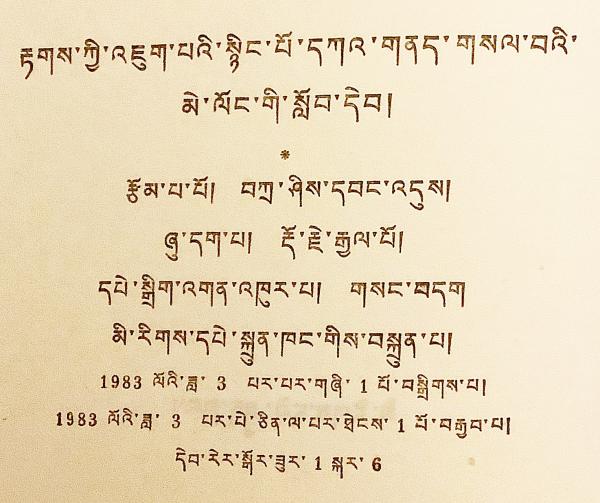 རྟགས་ཀྱི་འཇུག་པའི་སྙིང་པོ་དཀའ་གནད་གསལ་བའི་
མེ་ལོང་གི་སློབ་དེབ།
*
རྩོམ་པ་པོ། བཀྲ་ཤིས་དབང་འདུས།
ཞུ་དག་པ། རྡོ་རྗེ་རྒྱལ་པོ།
དཔེ་སྒྲིག་འགན་འཁུར་པ། གསང་བདག
མི་རིགས་དཔེ་སྐྲུན་ཁང་གིས་བསྐྲུན་པ།
1983 ལོའི་ཟླ་ 3 པར་པར་གཞི་ 1 པོ་བསྒྲིགས་པ།
1983 ལོའི་ཟླ་ 3 པར་པེ་ཅིན་ལ་པར་ཐེངས་ 1 པོ་བརྒྱབ་པ།
དེབ་རེར་སྒོར་ཟུར་ 1 སྐར་ 6